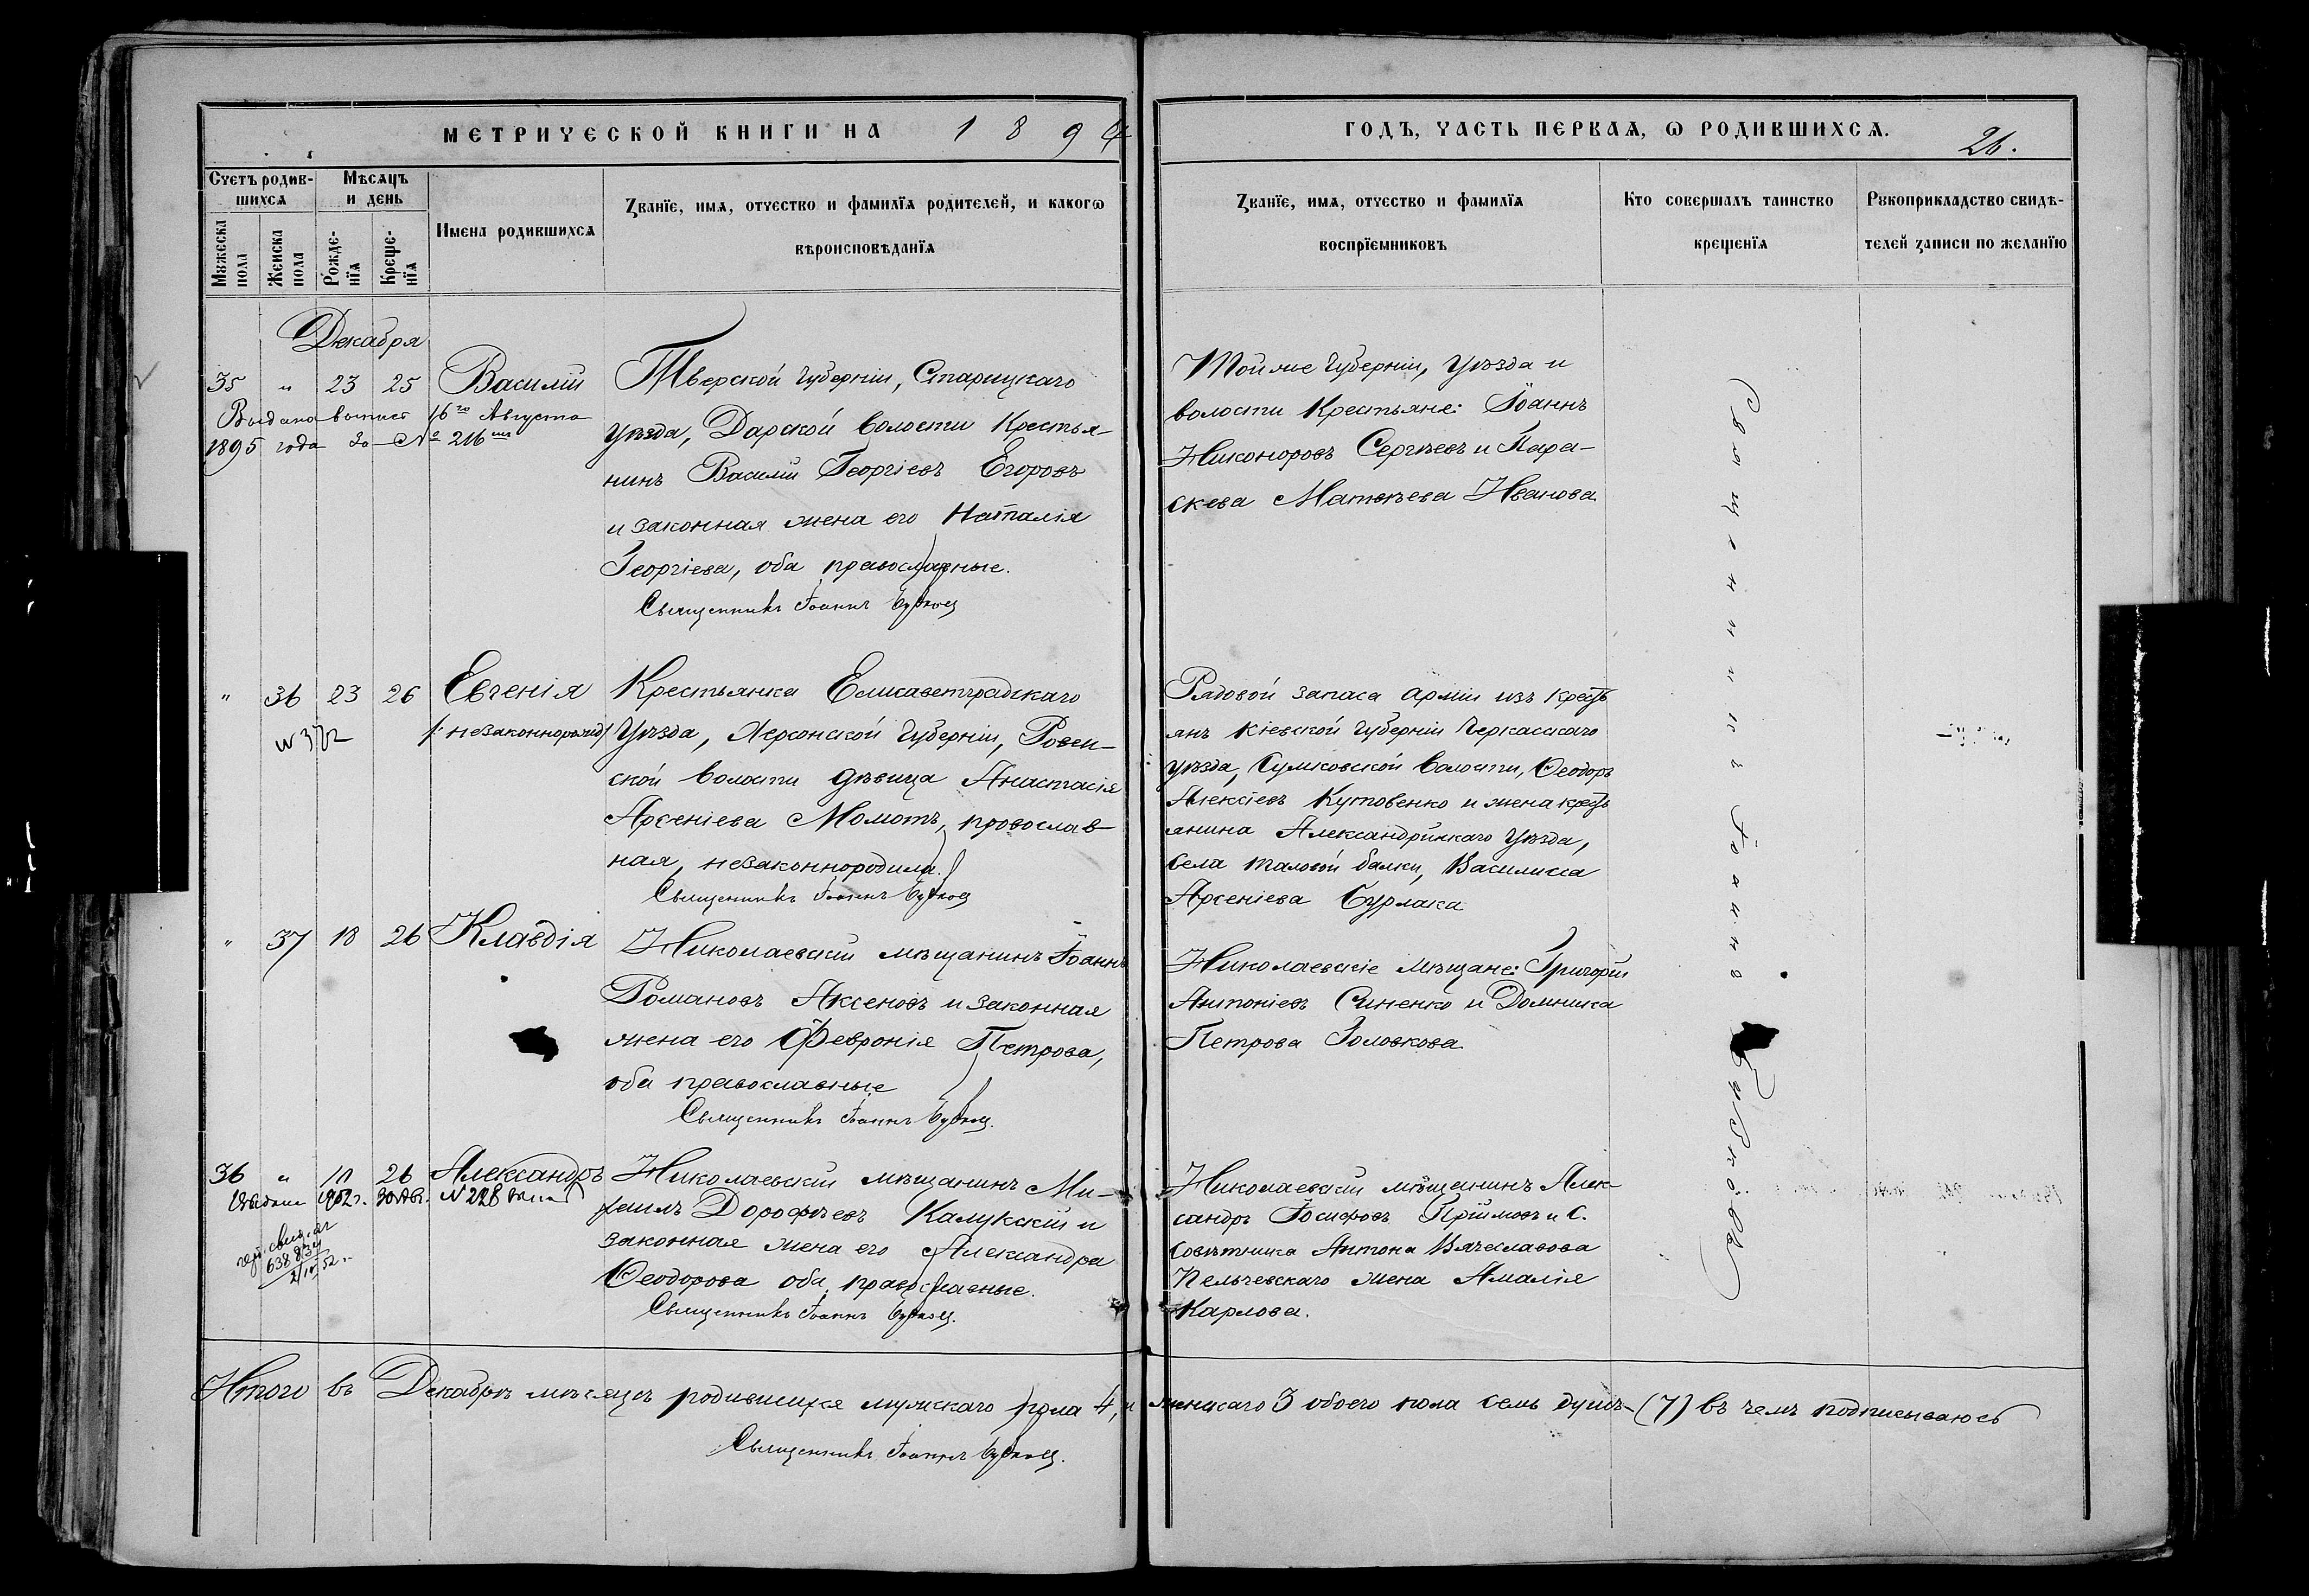 МЕТРИЧЕСКОЙ КНИГИ НА 1894
ГОДЪ, ЧАСТЬ ПЕРВАЯ, Ѡ РОДИВШИХСЯ.
26.
Счетъ родив-
шихся
Мѣсяцъ
и день
Мужеска
пола
Женска
пола
Рожде-
нїя
Креще-
нїя
Имена родившихся
Званїе, имя, отчество и фамилїя родителей, и какогѡ
вѣроисповѣданїя
Званїе, имя, отчество и фамилїя
воспрїемниковъ
Кто совершалъ таинство
крещенїя
Рукоприкладство свидѣ-
телей записи по желанїю
Декабря
35 " 23 25 Василій
Выдана выпись 16го Августа
1895 года за № 216
Тверской Губерніи, Старицкаго
уѣзда, Дарской волости Крестья-
нинъ Василій Георгіевъ Егоровъ
и законная жена его Наталія
Георгіева, оба православные.
Священникъ Іоаннъ
Той же Губерніи, Уѣзда и
волости Крестьяне: Іоаннъ
Никоноровъ Сергѣевъ и Пара-
скева Матѳѣева Иванова.
Священникъ Іоаннъ
" 36 23 26 Евгенія
/: незаконнорожд
Крестьянка Елисаветградскаго
Уѣзда, Херсонской Губерніи, Ровен-
ской волости дѣвица Анастасія
Арсеніева Момотъ, православ-
ная, незаконнородила.
Священникъ Іоаннъ
Рядовой запаса арміи изъ крест
янъ Кіевской Губерніи Черкасскаго
уѣзда, Сумковской волости, Ѳеодоръ
Алексіевъ Кутовенко и жена крест
янина Александрійскаго Уѣзда,
села Маловой балки, Василиса
Арсеніева Бурлака
" 37 18 26 Клавдія
Николаевскій мѣщанинъ Іоаннъ
Романовъ Аксеновъ и законная
жена его Февронія Петрова,
оба православные
Священникъ Іоаннъ
Николаевскіе мѣщане: Григорій
Антоніевъ Синенко и Домника
Петрова Головкова.
36 " 11 26 Александръ
1902 г. № 228
638834
Николаевскій мѣщанинъ Ми-
хаилъ Дороѳѣевъ Калужскій и
законная жена его Александра
Ѳеодорова оба православные.
Священникъ Іоаннъ
Николаевскій мѣщанинъ Алек-
сандръ Іосифовъ Пріимовъ и С.
Совѣтника Антона Вячеславова
Пельчевскаго жена Амалія
Карлова.
Итого въ Декабрѣ мѣсяцѣ родившихся мужскаго пола 4, и женскаго 3 обоего пола семь душъ (7) въ чемъ подписываюсь
Священникъ Іоаннъ